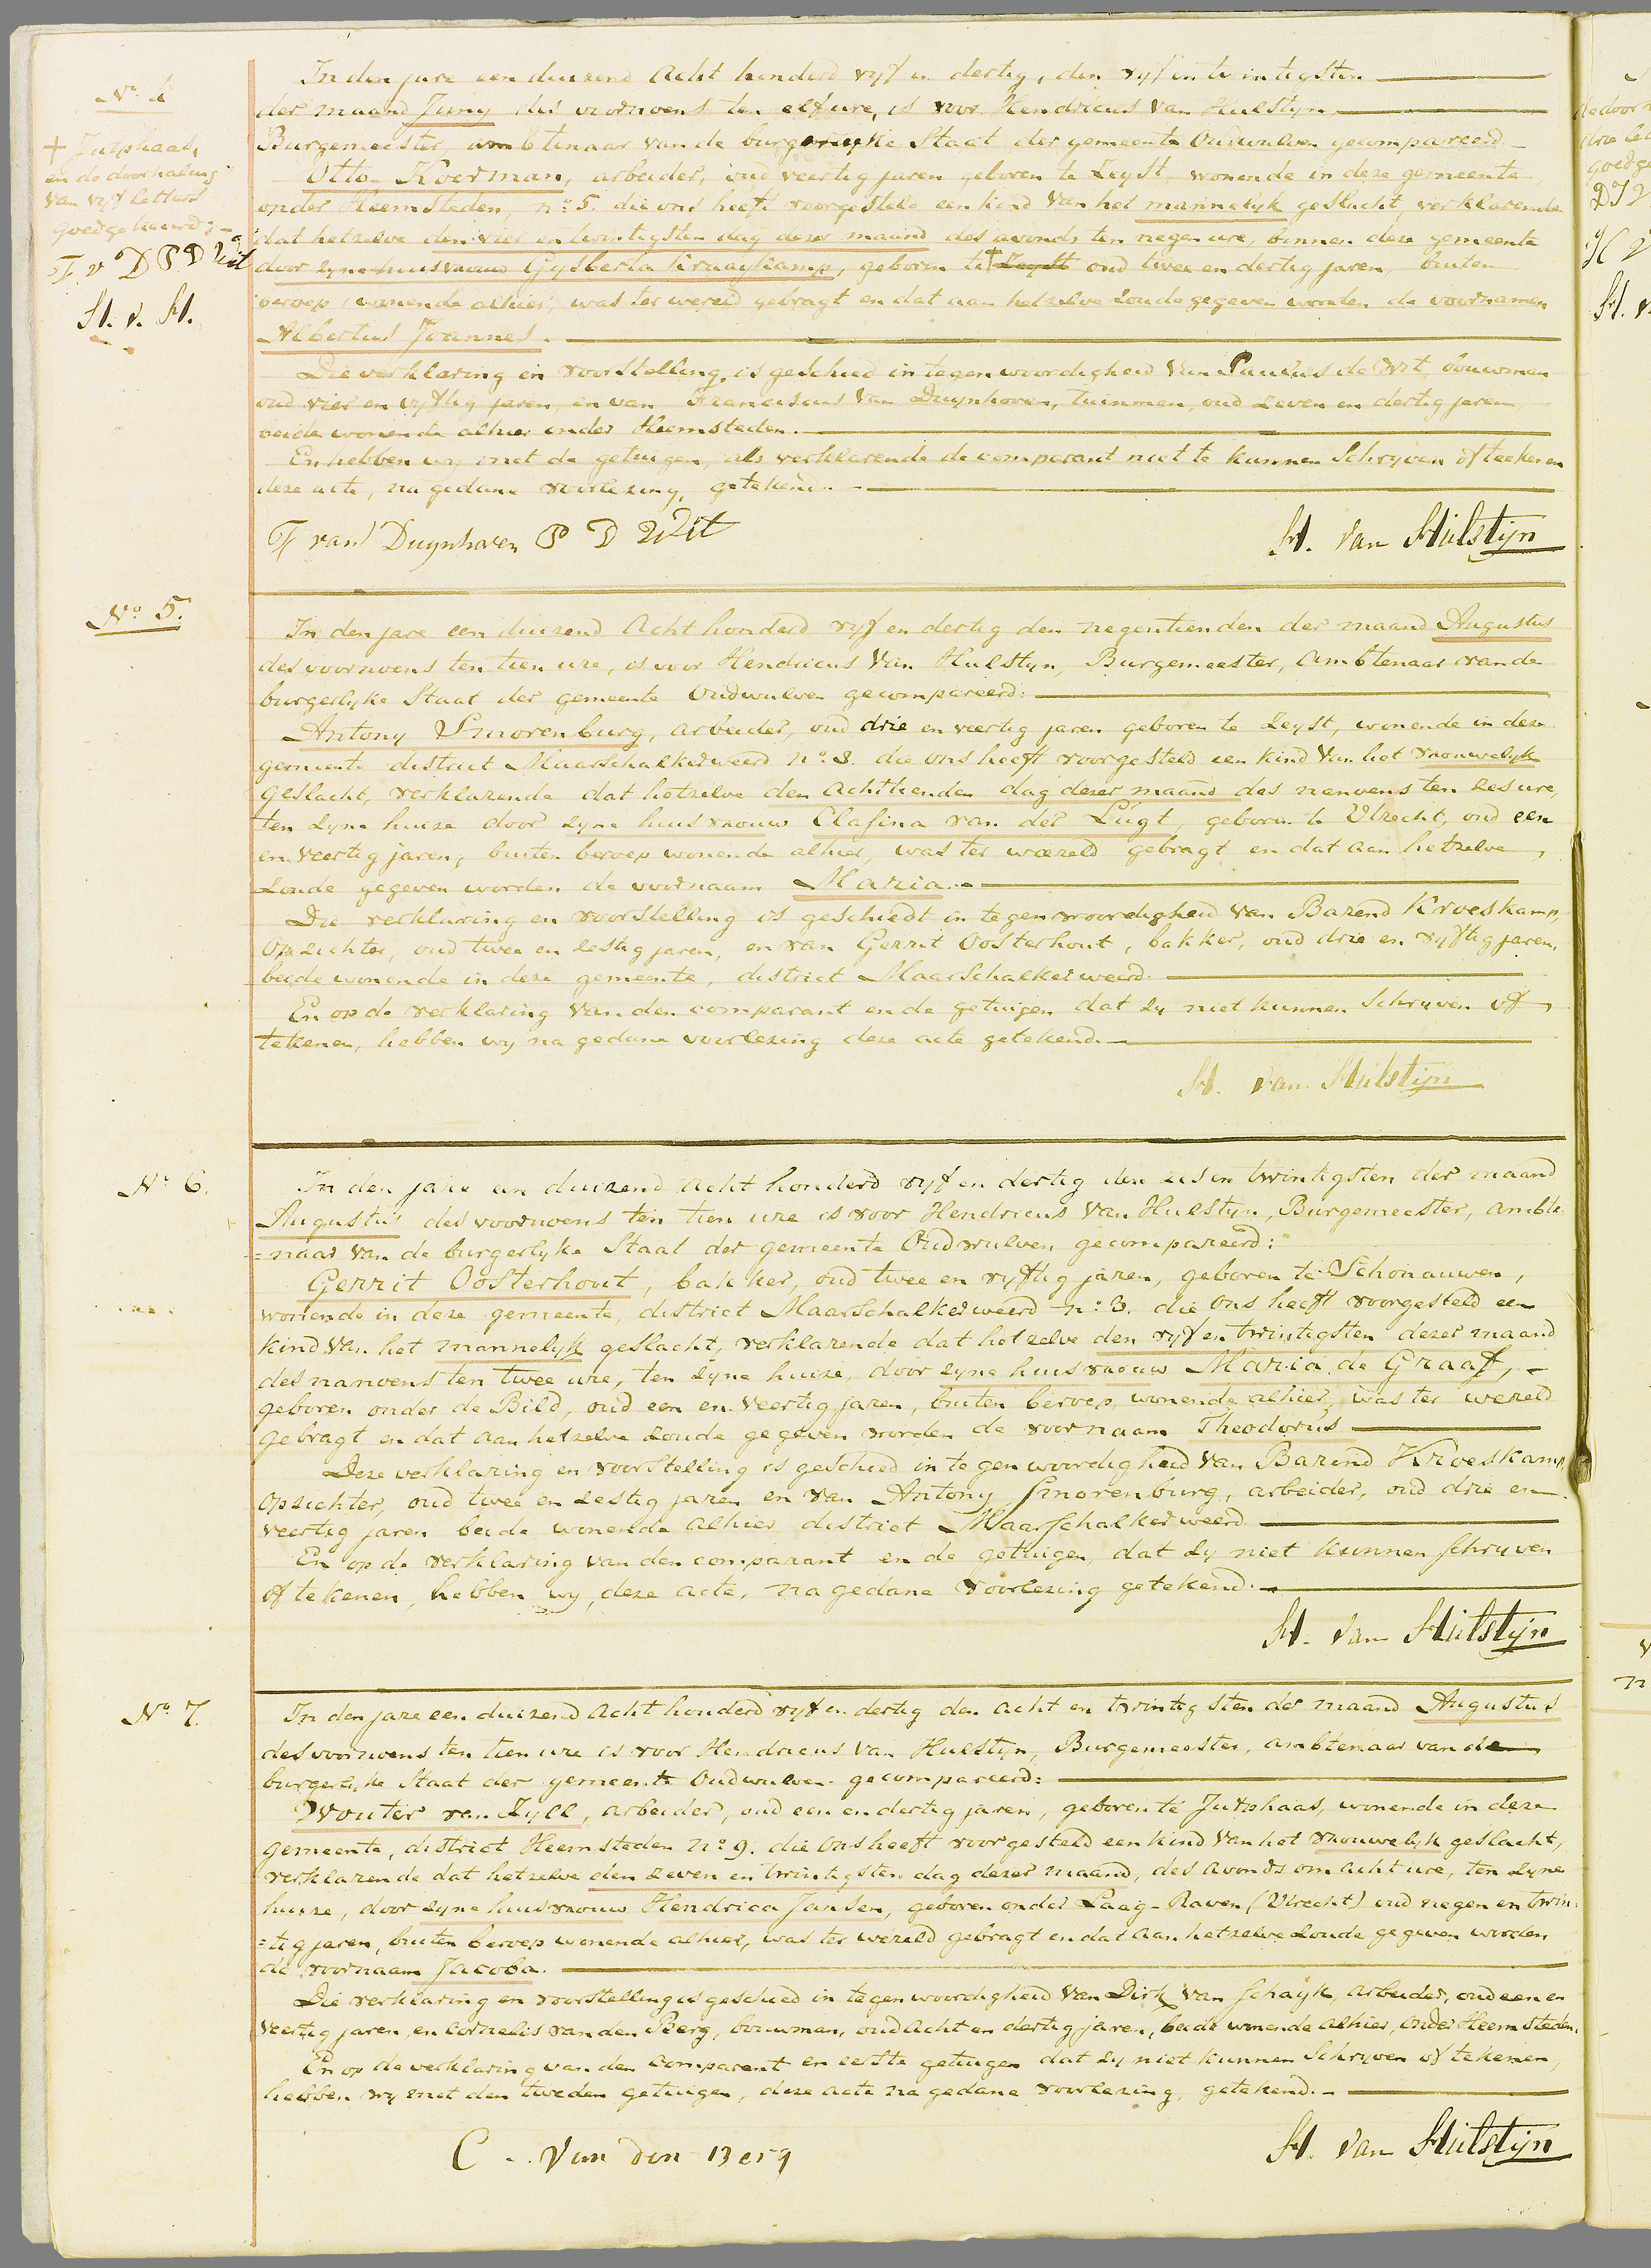 No. 4
+ Jutphaas,
en de doorhaling
van vyf letters
goedgekeurd;-
F. v D P D Wit
H. v. H.
In den jare een duizend Acht honderd vyf en dertig, den vyf en twintigsten
der maand Juny des voornoens ten elf ure, is voor Hendricus Van Hulstyn,
Burgemeester, ambtenaar van de burgerlyke Staat der gemeente Oudwulven gecompareerd
Otto Koerman, arbeider, oud veertig jaren geboren te Zeyst, wonende in deze gemeente
onder Heemsteden, no. 5. die ons heeft voorgesteld een kind Van het mannelyk geslacht, verklarende
dat hetzelve den vier en twintigsten dag dezer maand des avonds ten negen ure, binnen deze gemeente
door zyne huisvrouw Gysberta Kraaykamp, geboren te + Zeyst oud twee en dertig jaren, buiten
beroep, wonende alhier, was ter wereld gebragt en dat aan hetzelve zoude gegeven worden de voornamen
Albertus Joannes.
Die verklaring en voorstelling is geschied in tegenwoordigheid van Paulus de Wit, bouwman
oud vier en vyftig jaren, en van Franciscus Van Duynhoven, tuinman, oud zeven en dertig jaren,
beide wonende alhier onder Heemsteden.
En hebben wy met de getuigen, als verklarende de comparant niet te kunnen Schryven of teekenen
deze acte, na gedane voorlezing, getekend.
F van Duynhoven P D Wit H. Van Hulstyn
No. 5.
In den jare een duizend Acht honderd vyf en dertig den negentienden der maand Augustus
des voornoens ten tien ure, is voor Hendricus Van Hulstyn, Burgemeester, Ambtenaar van de
burgerlyke Staat der gemeente Oudwulven gecompareerd:
Antony Smorenburg, arbeider, oud drie en veertig jaren geboren te Zeyst, wonende in deze
gemeente district Maarschalkerweerd no. 3. die ons heeft voorgesteld een kind Van het vrouwelyk
geslacht, verklarende dat hetzelve den achttienden dag dezer maand des nanoens ten zes ure,
ten zyne huize door zyne huisvrouw Clasina van der Lugt, geboren te Utrecht, oud een
en veertig jaren, buiten beroep wonende alhier, was ter wereld gebragt en dat aan hetzelve
zoude gegeven worden de voornaam Maria.
Die verklaring en voorstelling is geschiedt in tegenwoordigheid van Barend Kroeskamp,
Opzichter, oud twee en zestig jaren, en van Gerrit Oosterhout, bakker, oud drie en vyftig jaren,
beide wonende in deze gemeente, district MaarSchalkerweerd.
En op de verklaring van den comparant en de getuigen dat zy niet kunnen Schryven of
tekenen, hebben wy na gedane voorlezing deze acte getekend.
H. Van Hulstyn
No. 6.
In den jare een duizend acht honderd vyf en dertig den zes en twintigsten der maand
Augustus des voornoens ten tien ure is voor Hendricus Van Hulstyn, Burgemeester, ambte
=naar van de burgerlyke Staat der gemeente Oudwulven gecompareerd:
Gerrit Oosterhout, bakker, oud twee en vyftig jaren, geboren te Schonauwen,
wonende in deze gemeente, district MaarSchalkerweerd no. 3. die ons heeft voorgesteld een
kind van het mannelyk geslacht, verklarende dat hetzelve den vyf en twintigsten dezer maand
des nanoens ten twee ure, ten zyne huize, door zyne huisvrouw Maria de Graaf,
geboren onder de Bild, oud een en veertig jaren, buiten beroep, wonende alhier, was ter wereld
gebragt en dat aan hetzelve zoude gegeven worden de voornaam Theodorus
Deze verklaring en voorstelling is geschied in tegenwoordigheid van Barend Kroeskamp,
Opzichter, oud twee en zestig jaren en van Antony Smorenburg, arbeider, oud drie en
veertig jaren beide wonende alhier district Maarschalkerweerd
En op de verklaring van den comparant en de getuigen, dat zy niet kunnen schryven
of tekenen, hebben wy, deze acte, na gedane voorlezing getekend.
H. Van Hulstyn
No. 7.
In den jare een duizend Acht honderd vyf en dertig den acht en twintigsten der maand Augustus
des voornoens ten tien ure is voor Hendricus Van Hulstyn, Burgemeester, ambtenaar van de
burgerlyke Staat der gemeente Oudwulven gecompareerd:
Wouter van Zyll, arbeider, oud een en dertig jaren, geboren te Jutphaas, wonende in deze
gemeente, district Heemsteden no. 9. die ons heeft voorgesteld een kind Van het vrouwelyk geslacht,
verklarende dat hetzelve den zeven en twintigsten dag dezer maand, des avonds om acht ure, ten zyne
huize, door zyne huisvrouw Hendrica Jansen, geboren onder Laag-Raven (Utrecht) oud negen en twin=
=tig jaren, buiten beroep wonende alhier, was ter wereld gebragt en dat aan hetzelve zoude gegeven worden
de voornaam Jacoba.
Die verklaring en voorstelling is geschied in tegenwoordigheid van Dirk Van Schayk, arbeider, oud een en
veertig jaren, en Cornelis van den Berg, bouwman, oud acht en dertig jaren, beide wonende alhier, onder Heemsteden.
En op de verklaring van den comparant en eerste getuigen dat zy niet kunnen Schryven of tekenen,
hebben wy met den tweden getuigen, deze acte na gedane voorlezing, getekend.
C. Van den Berg H. Van Hulstyn